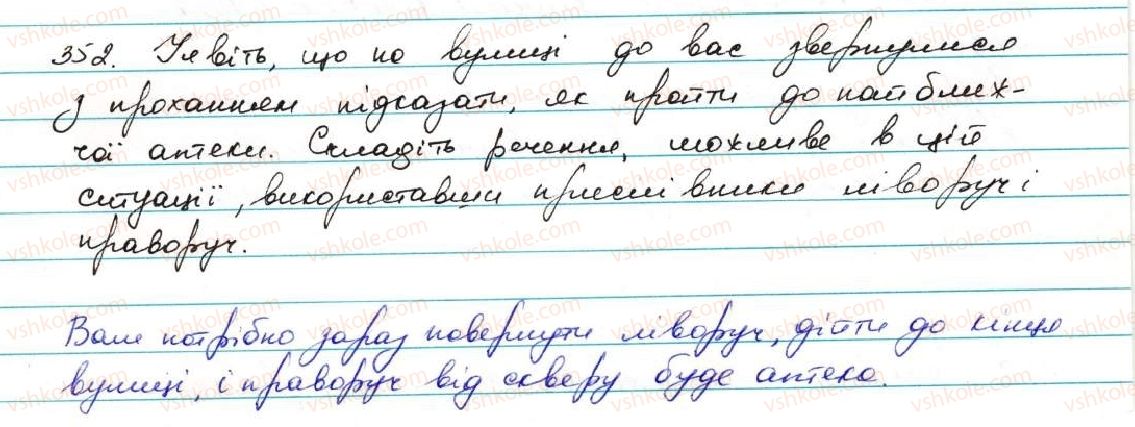 352. Уявіть, що на вулиці до вас звернулися
з проханням підказати, як пройти до найближ-
чої аптеки. Складіть речення, можливе в цій
ситуації, використавши прислівники ліворуч і
праворуч.
Вам потрібно зараз повернути ліворуч, дійти до кінця
вулиці, і праворуч від скверу буде аптека.